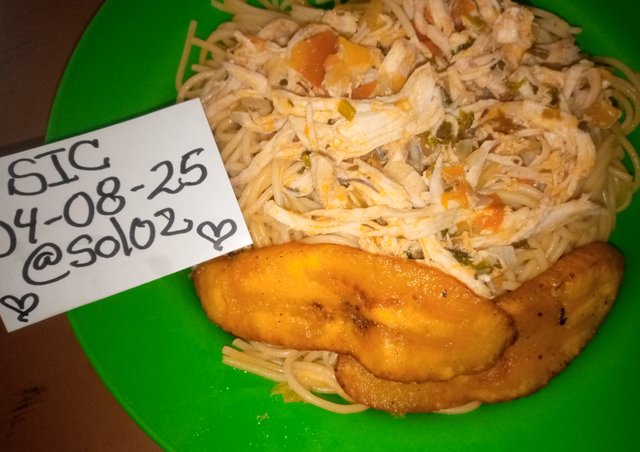 SIC
04-08-25
@Solo2